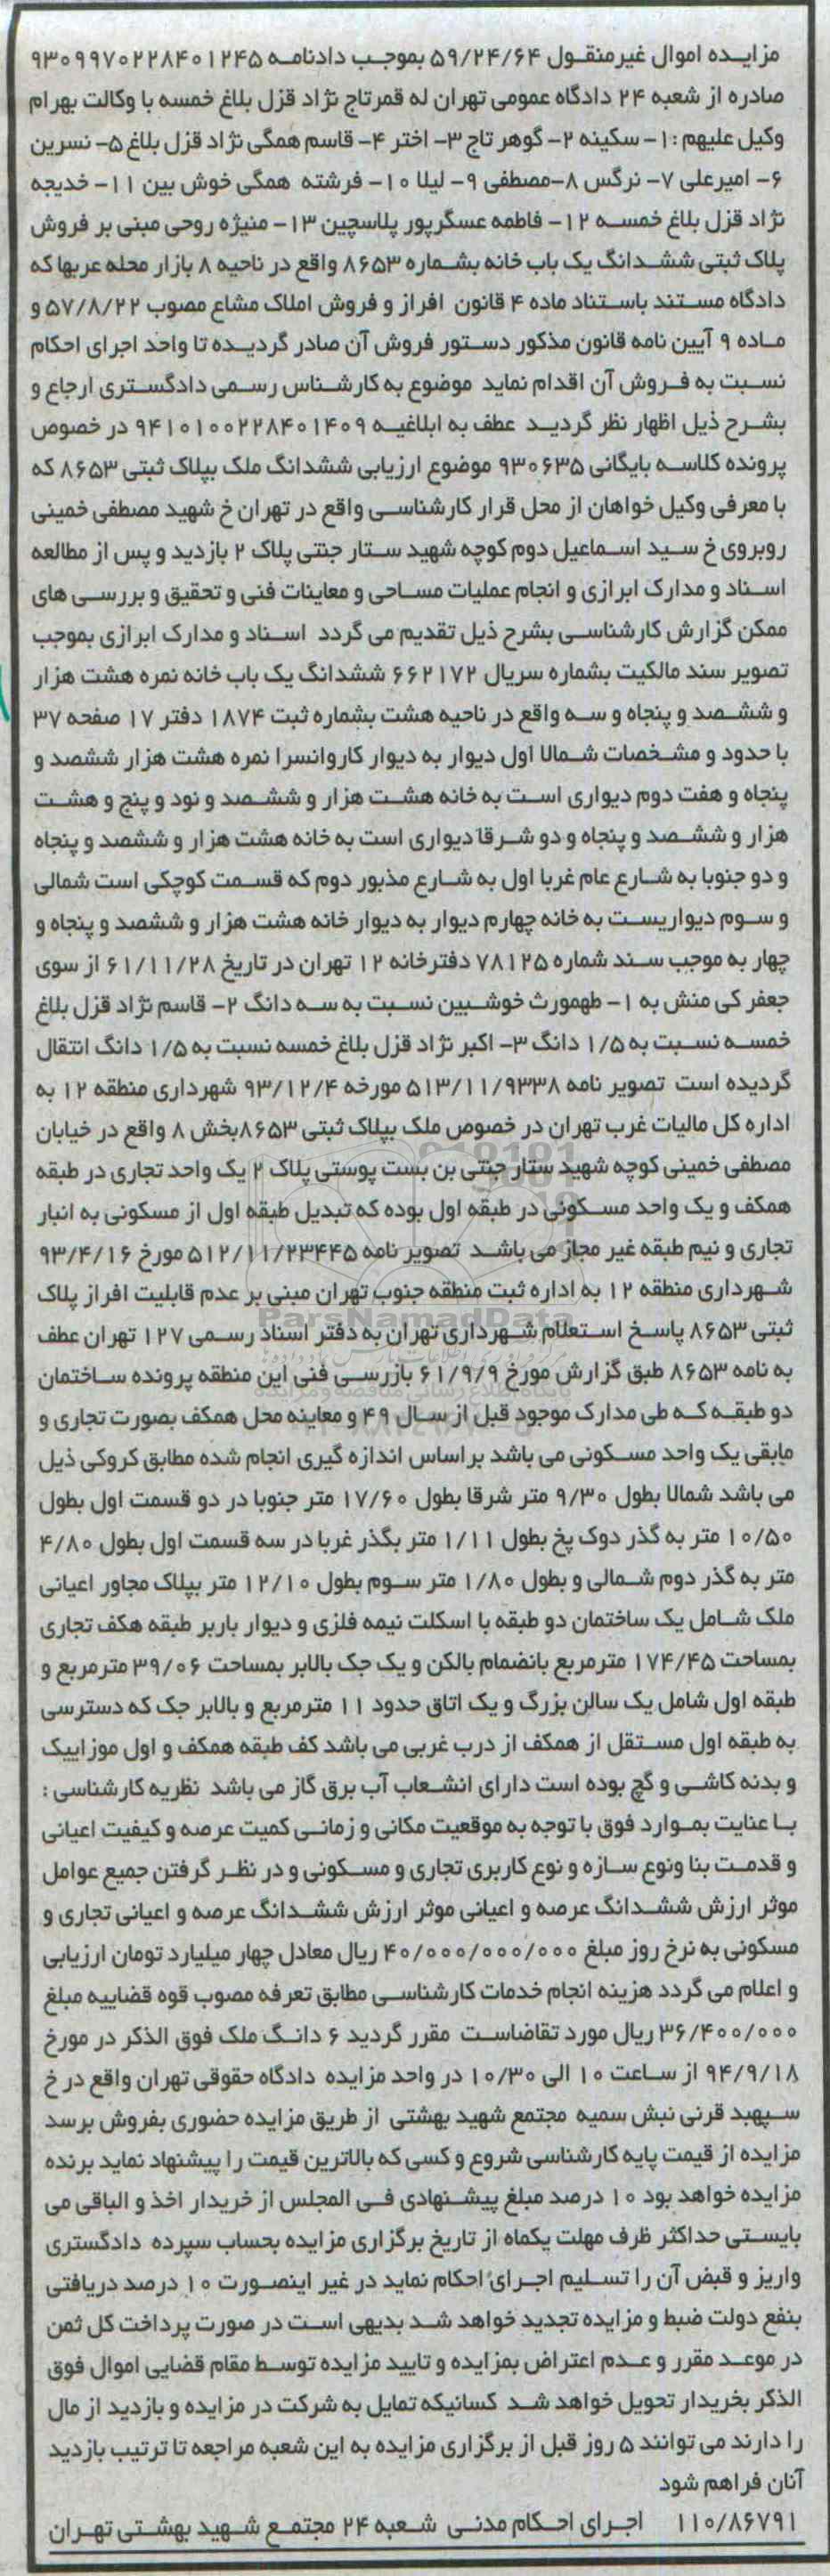 مزایـده اموال غیرمنقـول ۵۹/۲۴/۶۴ بموجـب دادنامـه ۹۳۰۹۹۷۰۲۲۸۴۰۱۲۴۵
صادره از شعبه ۲۴ دادگاه عمومی تهران له قمرتاج نژاد قزل بلاغ خمسه با وکالت بهرام
وکیل علیهم : ۱- سکینه ۲- گوهر تاج ۳- اختر ۴- قاسم همگی نژاد قزل بلاغ ۵- نسرین
۶- امیرعلی ۷- نرگس ۸-مصطفی ۹- لیلا ۱۰- فرشته همگی خوش بین ۱۱- خدیجه
نژاد قزل بلاغ خمسـه ۱۲- فاطمه عسگرپور پلاسچین ۱۳- منیژه روحی مبنی بر فروش
پلاک ثبتی ششـدانگ یک باب خانه بشـماره ۸۶۵۳ واقع در ناحیه ۸ بازار محله عربها که
دادگاه مستند باسـتناد ماده ۴ قانون افراز و فروش املاک مشاع مصوب ۵۷/۸/۲۲ و
مـاده ۹ آیین نامه قانون مذکور دسـتور فروش آن صادر گردیـده تا واحد اجرای احکام
نسـبت به فـروش آن اقدام نماید موضوع به کارشـناس رسـمی دادگسـتری ارجاع و
بشـرح ذیل اظهار نظر گردیـد عطف به ابلاغیـه ۹۴۱۰۱۰۰۲۲۸۴۰۱۴۰۹ در خصوص
پرونده کلاسـه بایگانی ۹۳۰۶۳۵ موضوع ارزیابی ششدانگ ملک بپلاک ثبتی ۸۶۵۳ که
با معرفی وکیل خواهان از محل قرار کارشناسـی واقع در تهران خ شهید مصطفی خمینی
روبروی خ سـید اسـماعیل دوم کوچه شهید سـتار جنتی پلاک ۲ بازدید و پس از مطالعه
اسـناد و مدارک ابرازی و انجام عملیات مسـاحی و معاینات فنی و تحقیق و بررسـی های
ممکن گزارش کارشناسـی بشرح ذیل تقدیم می گردد اسـناد و مدارک ابرازی بموجب
تصویر سند مالکیت بشماره سریال ۶۶۲۱۷۲ ششدانگ یک باب خانه نمره هشت هزار
و ششـصد و پنجاه و سـه واقع در ناحیه هشت بشماره ثبت ۱۸۷۴ دفتر ۱۷ صفحه ۳۷
با حدود و مشـخصات شـمالا اول دیوار به دیوار کاروانسرا نمره هشت هزار ششصد و
پنجاه و هفت دوم دیواری اسـت به خانه هشـت هزار و ششـصد و نود و پنج و هشـت
هزار و ششـصد و پنجاه و دو شـرقا دیواری است به خانه هشت هزار و ششصد و پنجاه
و دو جنوبا به شـارع عام غربا اول به شـارع مذبور دوم که قسـمت کوچکی است شمالی
و سـوم دیواریسـت به خانه چهارم دیوار به دیوار خانه هشت هزار و ششصد و پنجاه و
چهار به موجب سـند شماره ۷۸۱۲۵ دفترخانه ۱۲ تهران در تاریخ ۶۱/۱۱/۲۸ از سوی
جعفر کی منش به ۱- طهمورث خوشـبین نسـبت به سـه دانگ ۲- قاسم نژاد قزل بلاغ
خمسـه نسـبت به ۱/۵ دانگ ۳- اکبر نژاد قزل بلاغ خمسه نسبت به ۱/۵ دانگ انتقال
گردیده است تصویر نامه ۵۱۳/۱۱/۹۳۳۸ مورخه ۹۳/۱۲/۴ شهرداری منطقه ۱۲ به
اداره کل مالیات غرب تهران در خصوص ملک بپلاک ثبتی ۸۶۵۳بخش ۸ واقع در خیابان
مصطفی خمینی کوچه شهید ستار جنتی بن بست پوستی پلاک ۲ یک واحد تجاری در طبقه
همکف و یک واحد مسـکونی در طبقه اول بوده که تبدیل طبقه اول از مسکونی به انبار
تجاری و نیم طبقه غیر مجاز می باشـد تصویر نامه ۵۱۲/۱۱/۲۳۴۴۵ مورخ ۹۳/۴/۱۶
شـهرداری منطقه ۱۲ به اداره ثبت منطقه جنوب تهران مبنی بر عدم قابلیت افراز پلاک
ParsNamadData
ثبتی ۸۶۵۳ پاسـخ اسـتعلام شـهرداری تهران به دفتر اسناد رسـمی ۱۲۷ تهران عطف
به نامه ۸۶۵۳ طبق گزارش مورخ ۶۱/۹/۹ بازرسـی فنی این منطقه پرونده سـاختمان
دو طبقـه کـه طی مدارک موجود قبل از سـال ۴۹ و معاینه محل همکف بصورت تجاری و
مابقی یک واحد مسـکونی می باشد بر اساس اندازه گیری انجام شده مطابق کروکی ذیل
می باشد شمالا بطول ۹/۳۰ متر شرقا بطول ۱۷/۶۰ متر جنوبا در دو قسمت اول بطول
۱۰/۵۰ متر به گذر دوک پخ بطول ۱/۱۱ متر بگذر غربا در سه قسمت اول بطول ۴/۸۰
متر به گذر دوم شـمالی و بطول ۱/۸۰ متر سـوم بطول ۱۲/۱۰ متر بپلاک مجاور اعیانی
ملک شـامل یک ساختمان دو طبقه با اسکلت نیمه فلزی و دیوار باربر طبقه هکف تجاری
بمساحت ۱۷۴/۴۵ مترمربع بانضمام بالکن و یک جک بالابر بمساحت ۳۹/۰۶ مترمربع و
طبقه اول شامل یک سالن بزرگ و یک اتاق حدود ۱۱ مترمربع و بالابر جک که دسترسی
به طبقه اول مسـتقل از همکف از درب غربی می باشد کف طبقه همکف و اول موزاییک
و بدنه کاشـی و گچ بوده است دارای انشـعاب آب برق گاز می باشد نظریه کارشناسی :
بـا عنایت بمـوارد فوق با توجه به موقعیت مکانی و زمانـی کمیت عرصه و کیفیت اعیانی
و قدمـت بنا ونوع سـازه و نوع کاربری تجاری و مسـکونی و در نظـر گرفتن جمیع عوامل
موثر ارزش ششـدانگ عرصه و اعیانی موثر ارزش ششـدانگ عرصه و اعیانی تجاری و
مسکونی به نرخ روز مبلغ ۴۰/۰۰۰/۰۰۰/۰۰۰ ریال معادل چهار میلیارد تومان ارزیابی
و اعلام می گردد هزینه انجام خدمات کارشناسـی مطابق تعرفه مصوب قوه قضاییه مبلغ
۳۶/۴۰۰/۰۰۰ ریال مورد تقاضاسـت مقرر گردید ۶ دانـگ ملک فوق الذکر در مورخ
۹۴/۹/۱۸ از سـاعت ۱۰ الی ۱۰/۳۰ در واحد مزایده دادگاه حقوقی تهران واقع در خ
سـپهبد قرنی نبش سمیه مجتمع شهید بهشتی از طریق مزایده حضوری بفروش برسد
مزایده از قیمت پایه کارشناسی شروع و کسی که بالاترین قیمت را پیشنهاد نماید برنده
مزایده خواهد بود ۱۰ درصد مبلغ پیشـنهادی فـی المجلس از خریدار اخذ و الباقی می
بایسـتی حداکثر ظرف مهلت یکماه از تاریخ برگزاری مزایده بحساب سپرده دادگستری
واریز و قبض آن را تسـلیم اجـرای احکام نماید در غیر اینصـورت ۱۰ درصد دریافتی
بنفع دولت ضبط و مزایده تجدید خواهد شـد بدیهی اسـت در صورت پرداخت کل ثمن
در موعـد مقرر و عـدم اعتراض بمزایده و تایید مزایده توسـط مقام قضایی اموال فوق
الذکر بخریدار تحویل خواهد شـد کسانیکه تمایل به شرکت در مزایده و بازدید از مال
را دارند می توانند ۵ روز قبل از برگزاری مزایده به این شعبه مراجعه تا ترتیب بازدید
آنان فراهم شود
۱۱۰/۸۶۷۹۱ اجـرای احـکام مدنـی شـعبه ۲۴ مجتمـع شـهید بهشـتی تهـران